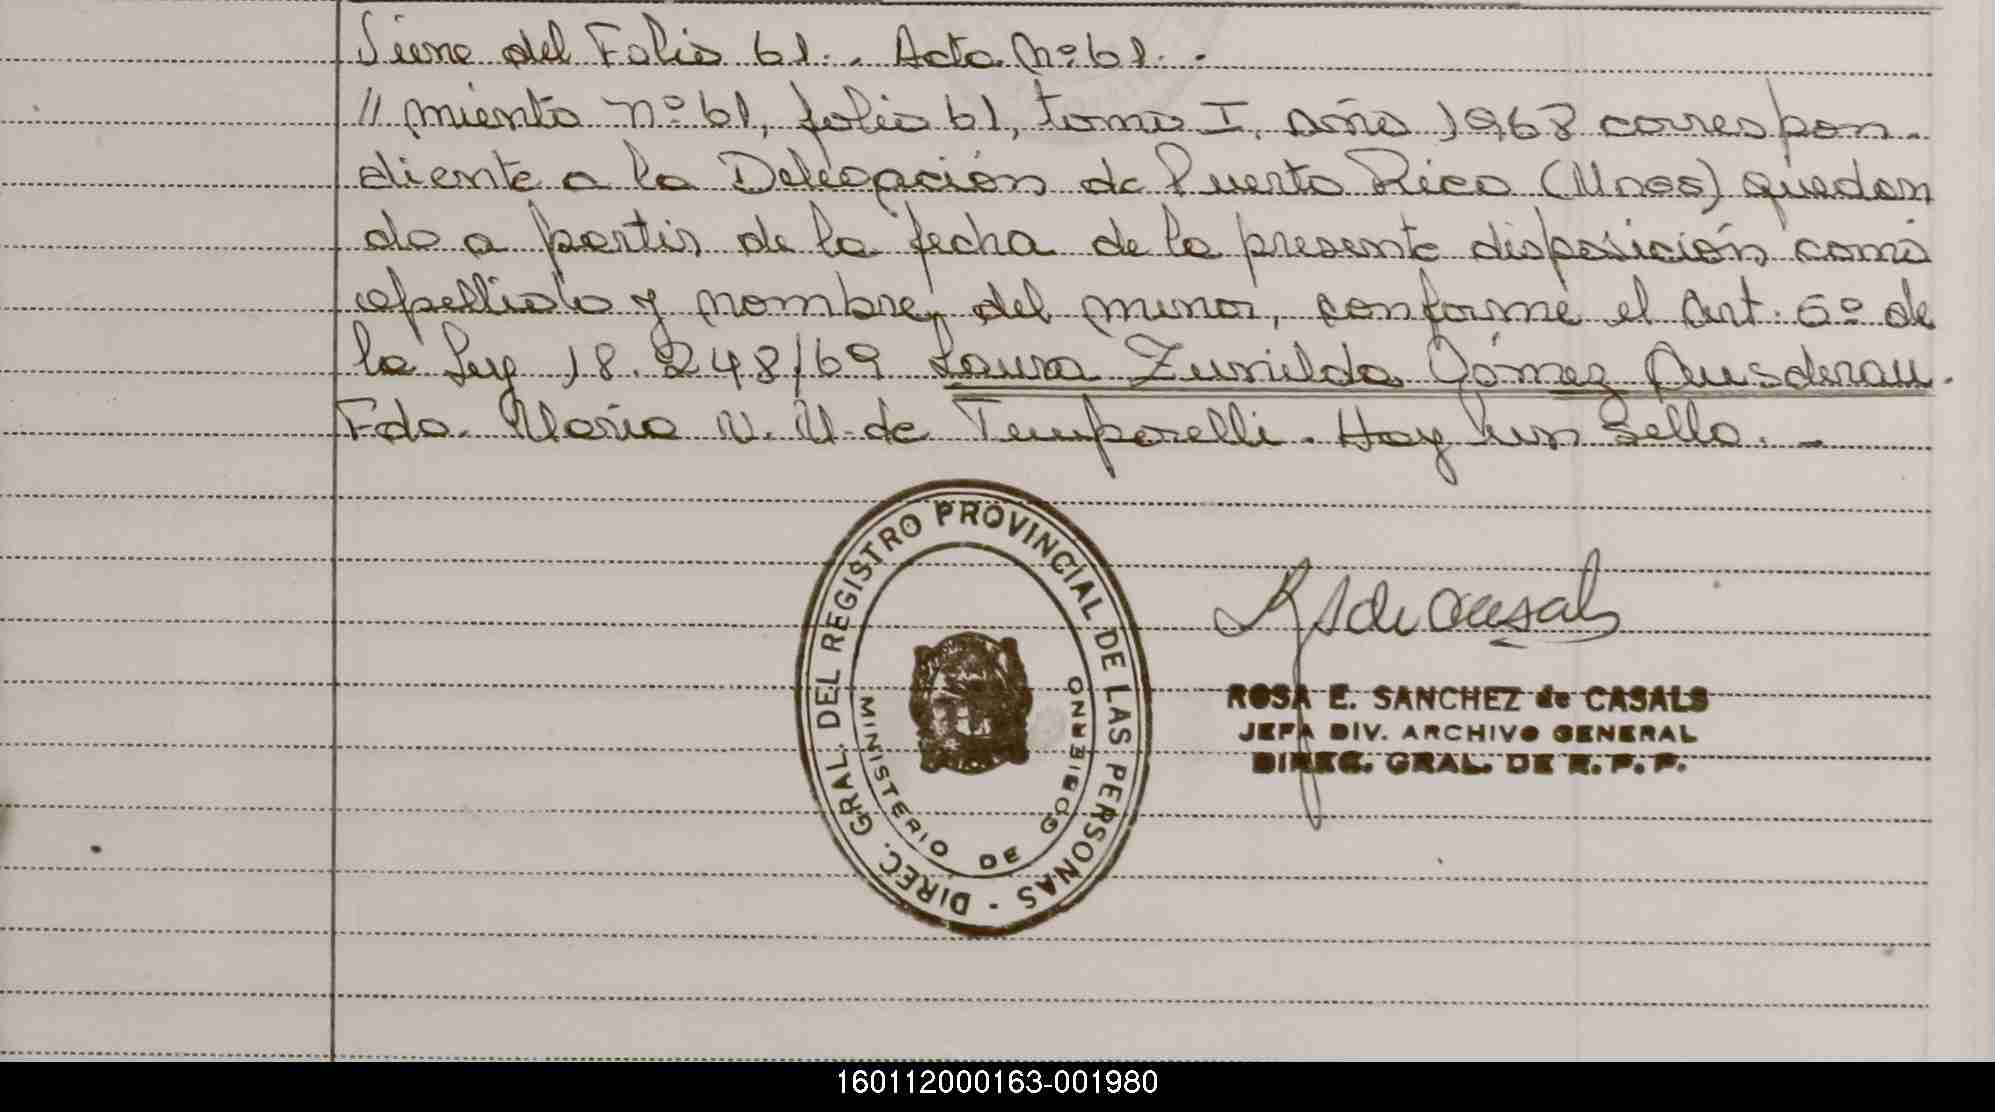 Viene del Folio 61.. Acta Nº 61. -
// miento nº 61, folio 61, tomo I, año 1968 correspon-
diente a la Delegación de Puerto Rico (Mnes) quedan
do a partir de la fecha de la presente disposición como
apellido y nombre, del menor, conforme el Art. 6º de
la Ley 18.248/69 Laura Zunilda Gómez Ausderau.
Fdo. María N. M. de Temporelli. Hay un sello. -
DIREC. GRAL. DEL REGISTRO PROVINCIAL DE LAS PERSONAS -
MINISTERIO DE GOBIERNO
R S de Casals
ROSA E. SANCHEZ de CASALS
JEFA DIV. ARCHIVO GENERAL
DIREC. GRAL. DE R. P. P.
160112000163-001980